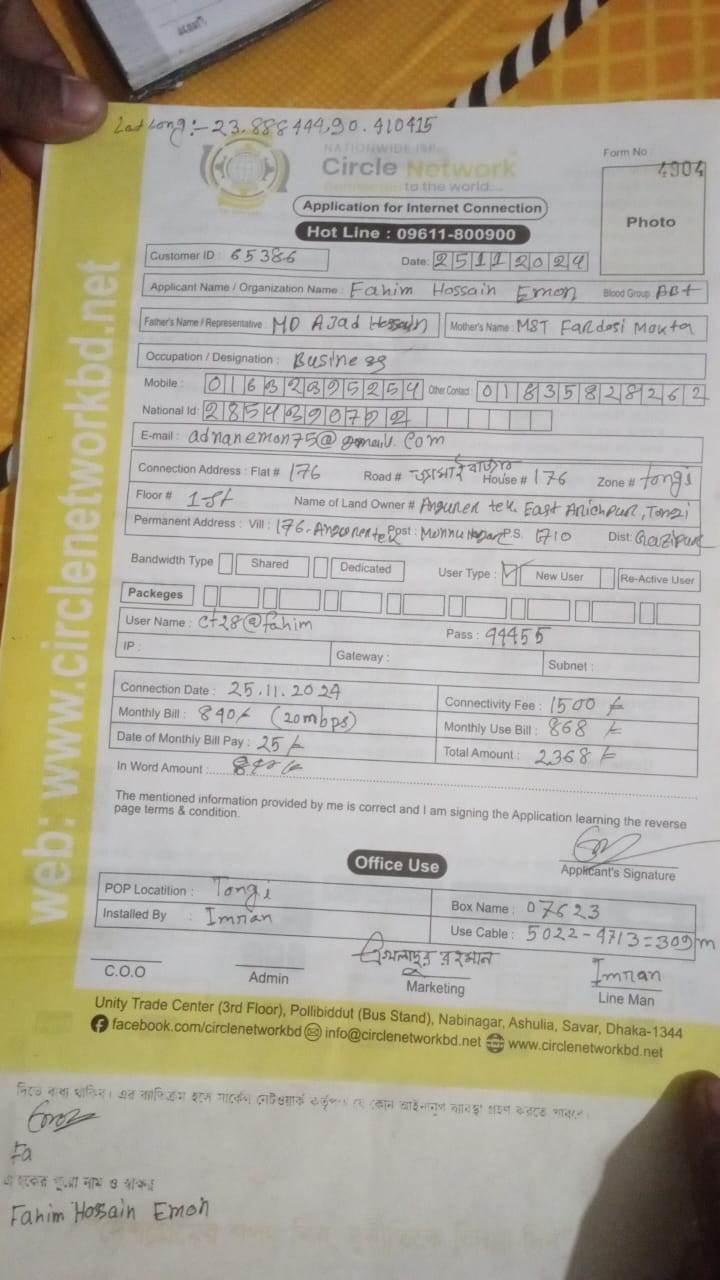 Lat Long:- 23.888444,90.410415
NATIONWIDE ISP
Circle Network
to the world...
Form No
4904
Application for Internet Connection
Photo
Hot Line : 09611-800900
Customer ID : 65386
Date: 25112024
Applicant Name / Organization Name : Fahim Hossain Emon Blood Group: AB+
Father's Name / Representative : MD Azad Hossain Mother's Name : MST Fardosi Mokta
Occupation / Designation : Business
Mobile : 01632395254 Other Contact : 01835828262
National Id: 2854390722
E-mail : adnanemon75@gmail.com
Connection Address : Flat # 176 Road # জামাই বাজার House # 176 Zone # Tongi
Floor # 1st Name of Land Owner # Angurer tek. East Arichpur, Tongi
Permanent Address : Vill : 176, Angorertek Post : Monnu Nagar P.S. 1710 Dist: Gazipur
Bandwidth Type Shared Dedicated User Type : New User Re-Active User
Packeges
User Name : ct28@fahim Pass : 44455
IP : Gateway : Subnet :
Connection Date : 25.11.2024 Connectivity Fee : 1500 /-
Monthly Bill : 840/- (20mbps) Monthly Use Bill : 868 /-
Date of Monthly Bill Pay : 25 /- Total Amount : 2368 /-
In Word Amount :
The mentioned information provided by me is correct and I am signing the Application learning the reverse
page terms & condition.
Applicant's Signature
Office Use
POP Locatition : Tongi Box Name : 07623
Installed By : Imran Use Cable : 5022-4713=309m
এখলাদুর রহমান Imran
C.O.O Admin Marketing Line Man
Unity Trade Center (3rd Floor), Pollibiddut (Bus Stand), Nabinagar, Ashulia, Savar, Dhaka-1344
facebook.com/circlenetworkbd info@circlenetworkbd.net www.circlenetworkbd.net
web: www.circlenetworkbd.net
দিতে বাধ্য থাকিব। এর ব্যতিক্রম হলে সার্কেল নেটওয়ার্ক কর্তৃপক্ষ যে কোন আইনানুগ ব্যবস্থা গ্রহণ করতে পারবে।
Fa
গ্রাহকের পুরো নাম ও স্বাক্ষর
Fahim Hossain Emon